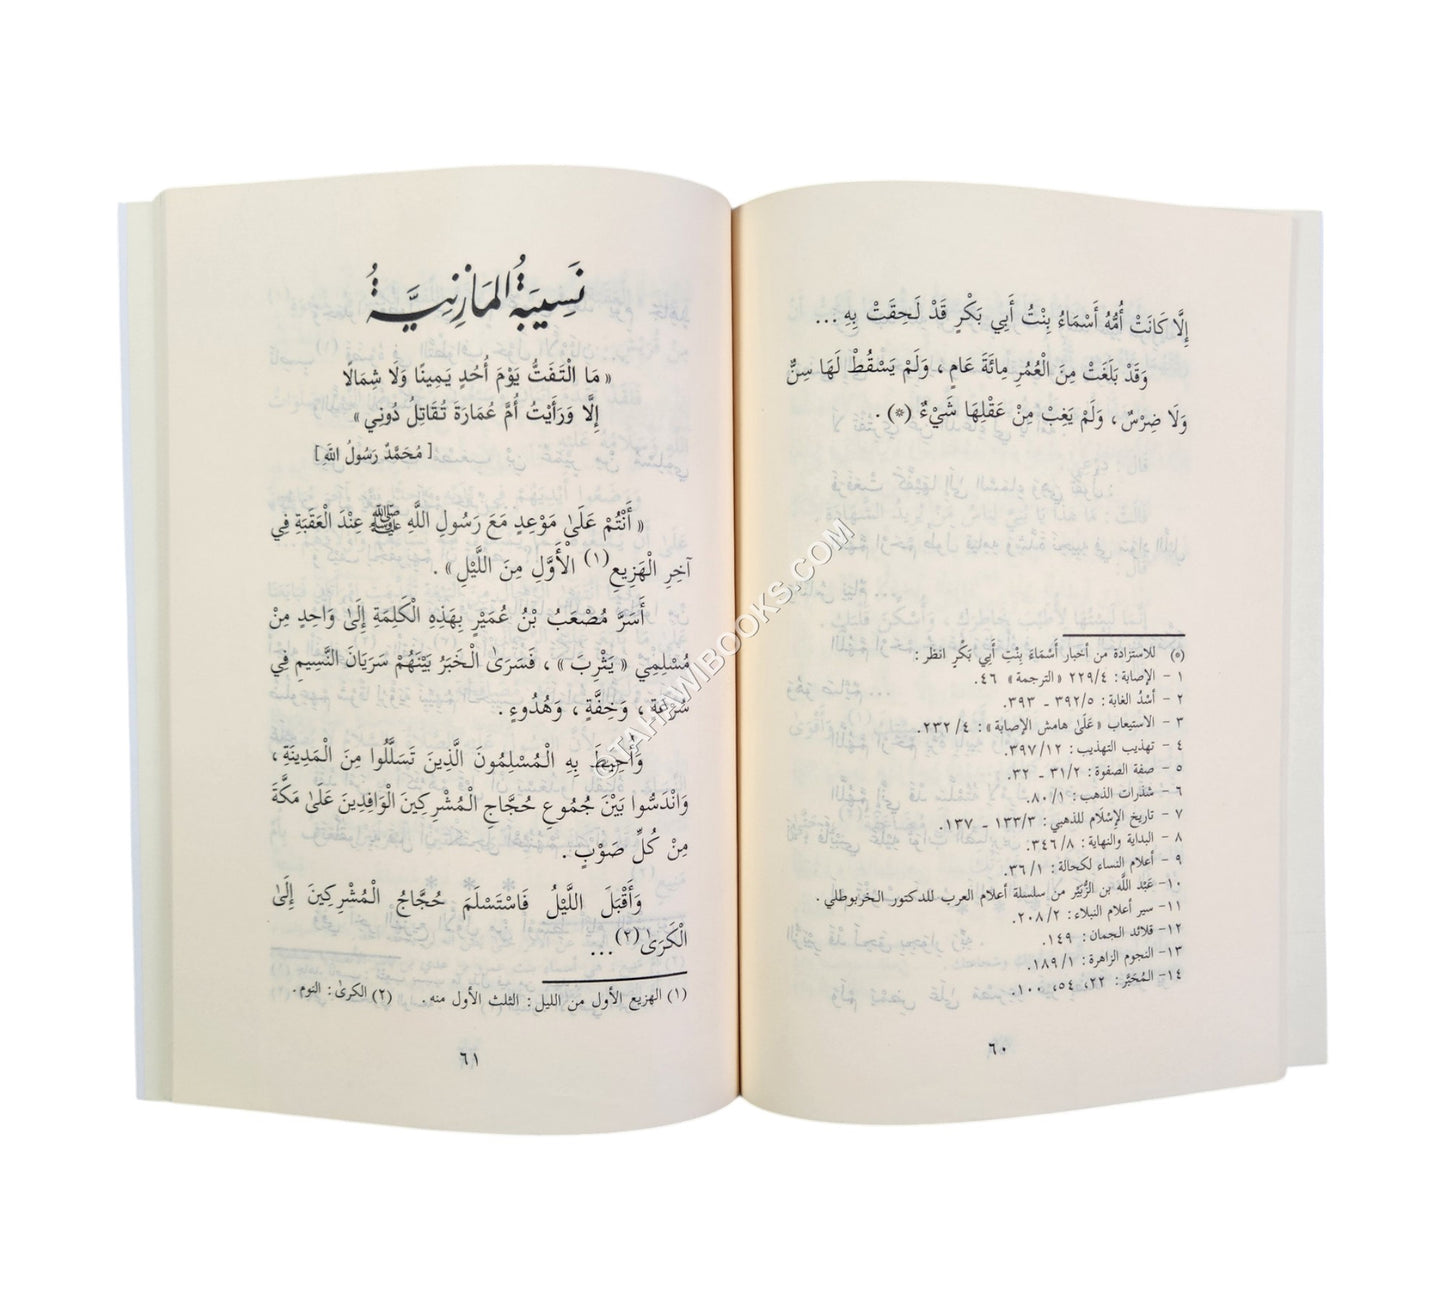 إِلَّا كَانَتْ أُمُّهُ أَسْمَاءُ بِنْتُ أَبِي بَكْرٍ قَدْ لَحِقَتْ بِهِ ...
وَقَدْ بَلَغَتْ مِنَ الْعُمُرِ مِائَةَ عَامٍ ، وَلَمْ يَسْقُطْ لَهَا سِنٌّ
وَلَا ضِرْسٌ ، وَلَمْ يَغِبْ مِنْ عَقْلِهَا شَيْءٌ (*) .
(*) للاستزادة من أخبار أَسْمَاءَ بِنْتِ أَبِي بَكْرٍ انظر :
١ - الإصابة : ٢٢٩/٤ «الترجمة» ٤٦.
٢ - أُسْدُ الغابة : ٣٩٢/٥ - ٣٩٣.
٣ - الاستيعاب «عَلَىٰ هامش الإصابة» : ٢٣٢/٤.
٤ - تهذيب التهذيب : ٣٩٧/١٢.
٥ - صفة الصفوة : ٣١/٢ - ٣٢.
٦ - شذرات الذهب : ٨٠/١.
٧ - تاريخ الإسْلام للذهبي : ١٣٣/٣ - ١٣٧.
٨ - البداية والنهاية : ٣٤٦/٨.
٩ - أعلام النساء لكحالة : ٣٦/١.
١٠- عَبْد اللَّه بن الزُّبَيْر من سلسلة أعلام العرب للدكتور الخربوطلي .
١١- سير أعلام النبلاء : ٢٠٨/٢.
١٢- قلائد الجمان : ١٤٩.
١٣- النجوم الزاهرة : ١٨٩/١.
١٤- المُحَبَّر : ٢٢، ٥٤، ١٠٠.
٦٠
نَسِيبَةُ المَازِنِيَّةُ
« مَا الْتَفَتُّ يَوْمَ أُحُدٍ يَمِينًا وَلَا شِمَالًا
إِلَّا وَرَأَيْتُ أُمَّ عُمَارَةَ تُقَاتِلُ دُونِي »
[ مُحَمَّدٌ رَسُولُ اللهِ ]
« أَنْتُمْ عَلَىٰ مَوْعِدٍ مَعَ رَسُولِ اللَّهِ ﷺ عِنْدَ الْعَقَبَةِ فِي
آخِرِ الْهَزِيعِ(١) الْأَوَّلِ مِنَ اللَّيْلِ » .
أَسَرَّ مُصْعَبُ بْنُ عُمَيْرٍ بِهَذِهِ الْكَلِمَةِ إِلَىٰ وَاحِدٍ مِنْ
مُسْلِمِي « يَثْرِبَ » ، فَسَرَىٰ الْخَبَرُ بَيْنَهُمْ سَرَيَانَ النَّسِيمِ فِي
سُرْعَةٍ ، وَخِفَّةٍ ، وَهُدُوءٍ .
وَأُحِيطَ بِهِ الْمُسْلِمُونَ الَّذِينَ تَسَلَّلُوا مِنَ الْمَدِينَةِ ،
وَانْدَسُّوا بَيْنَ جُمُوعِ حُجَّاجِ الْمُشْرِكِينَ الْوَافِدِينَ عَلَىٰ مَكَّةَ
مِنْ كُلِّ صَوْبٍ .
وَأَقْبَلَ اللَّيْلُ فَاسْتَسْلَمَ حُجَّاجُ الْمُشْرِكِينَ إِلَىٰ
الْكَرَىٰ(٢) ...
(١) الهزيع الأول من الليل : الثلث الأول منه . (٢) الكرىٰ : النوم .
٦١
©TAHAWIBOOKS.COM